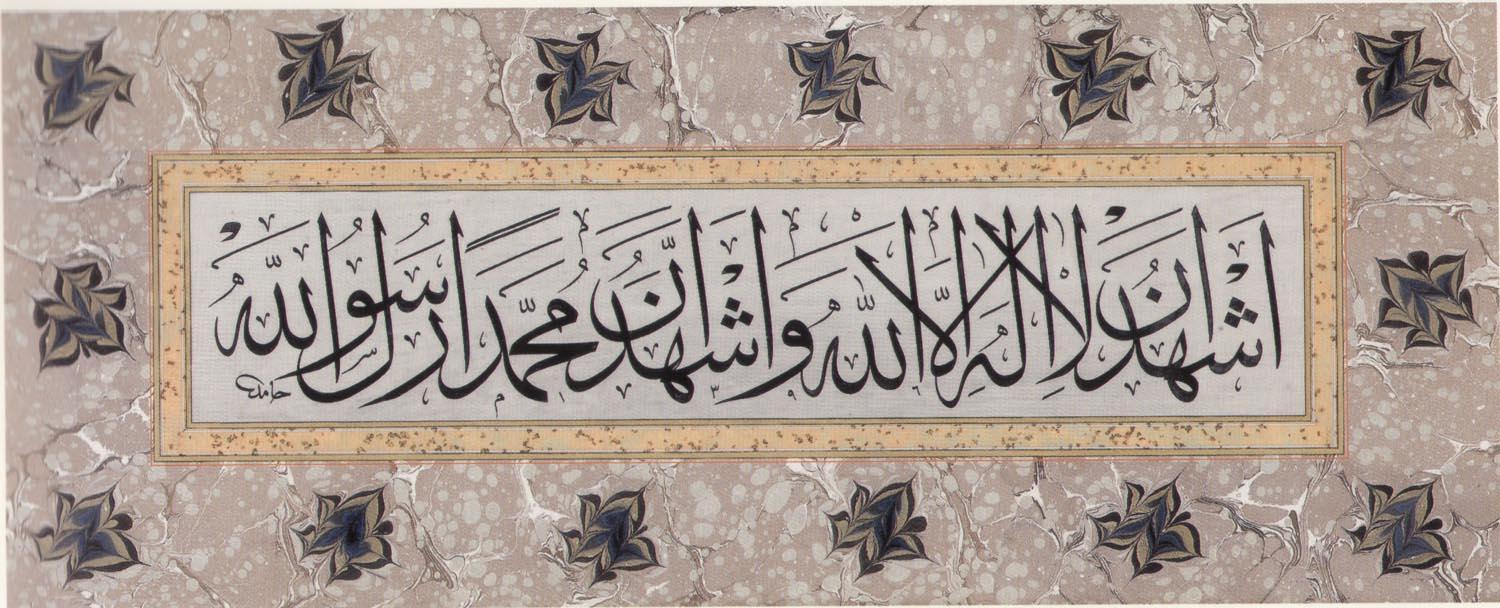 اَشْهَدُ اَنْ لَا اِلٰهَ اِلَّا اللّٰهُ وَاَشْهَدُ اَنَّ مُحَمَّدًا رَسُولُ اللّٰهِ
حامد